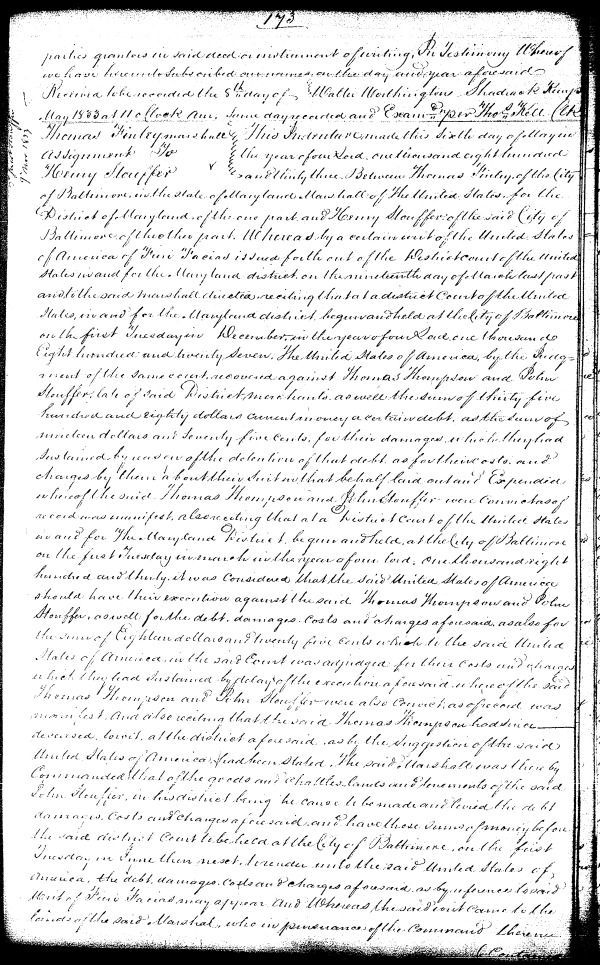 173
parties grantors in said deed or instrument of writing, In Testimony Whereof
we have hereunto subscribed our names, on the day and year aforesaid
Received to be recorded the 8th day of Walter Worthington Shadrack Kemp
May 1833 at 11 oClock Am. Same day recorded and Examd per Thos Kell Clk
Thomas Finley marshall This Indenture, made this sixth day of May in
Assignment To the year of our Lord, one thousand eight hundred
Henry Stouffer and thirty three Between Thomas Finley, of the City
of Baltimore, in the state of Maryland Marshall of The United States, for the
District of Maryland, of the one part, and Henry Stouffer, of the said City of
Baltimore, of the other part. Whereas by a certain writ of the United States
of America of Firi Facias issued forth out of the District court of the United
States in and for the Maryland district, on the nineteenth day of March last past
and to the said Marshall directed, reciting that at a district Court of the United
States, in and for the Maryland district, begun and held at the City of Baltimore
on the first Tuesday in December, in the year of our Lord, one thousand
Eight hundred and twenty seven, The United States of America, by the Judg-
ment of the same court, recovered against Thomas Thompson and John
Stouffer, late of said District, merchants, as well the sum of thirty five
hundred and eighty dollars current money a certain debt, as the sum of
nineteen dollars and seventy five cents, for their damages, which they had
sustained by reason of the detention of that debt, as for their costs, and
charges by them about their suit in that behalf laid out and Expended
whereof the said Thomas Thompson and John Stouffer were Convict as of
record was manifest, also reciting that at a District Court of the United States
in and for The Maryland District, begun and held, at the City of Baltimore
on the first Tuesday in march in the year of our lord, One thousand eight
hundred and thirty, it was Considered that the said United States of America
should have their execution against the said Thomas Thompson and John
Stouffer, as well for the debt, damages, costs and charges aforesaid, as also for
the sum of Eighteen dollars and twenty five cents which to the said United
States of America, in the said Court was adjudged for their Costs and charges
which they had sustained by delay of the execution aforesaid whereof the said
Thomas Thompson and John Stouffer were also Convict, as of record was
manifest, And also reciting that the said Thomas Thompson had since
deceased, to wit, at the district aforesaid, as by the suggestion of the said
United States of America, had been stated, The said Marshall was thereby
Commanded that of the goods and chattles, lands and tenements of the said
John Stouffer, in his district being he cause to be made and levied the debt
damages, Costs and charges aforesaid, and have those sums of money before
the said district Court to be held at the City of Baltimore, on the first
Tuesday in June then next, to render unto the said United States of
America, the debt, damages, costs and charges aforesaid, as by reference to said
Writ of Firi Facias may appear And Whereas the said writ came to the
hands of the said Marshal, who in persuance of the Command therein